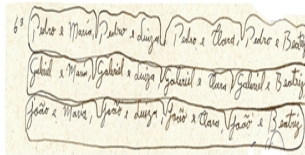 6ª Pedro e Maria, Pedro e Luiza, Pedro e Clara, Pedro e Beatriz
Gabriel e Maria, Gabriel e Luiza, Gabriel e Clara, Gabriel e Beatriz
João e Maria, João e Luiza, João e Clara, João e Beatriz